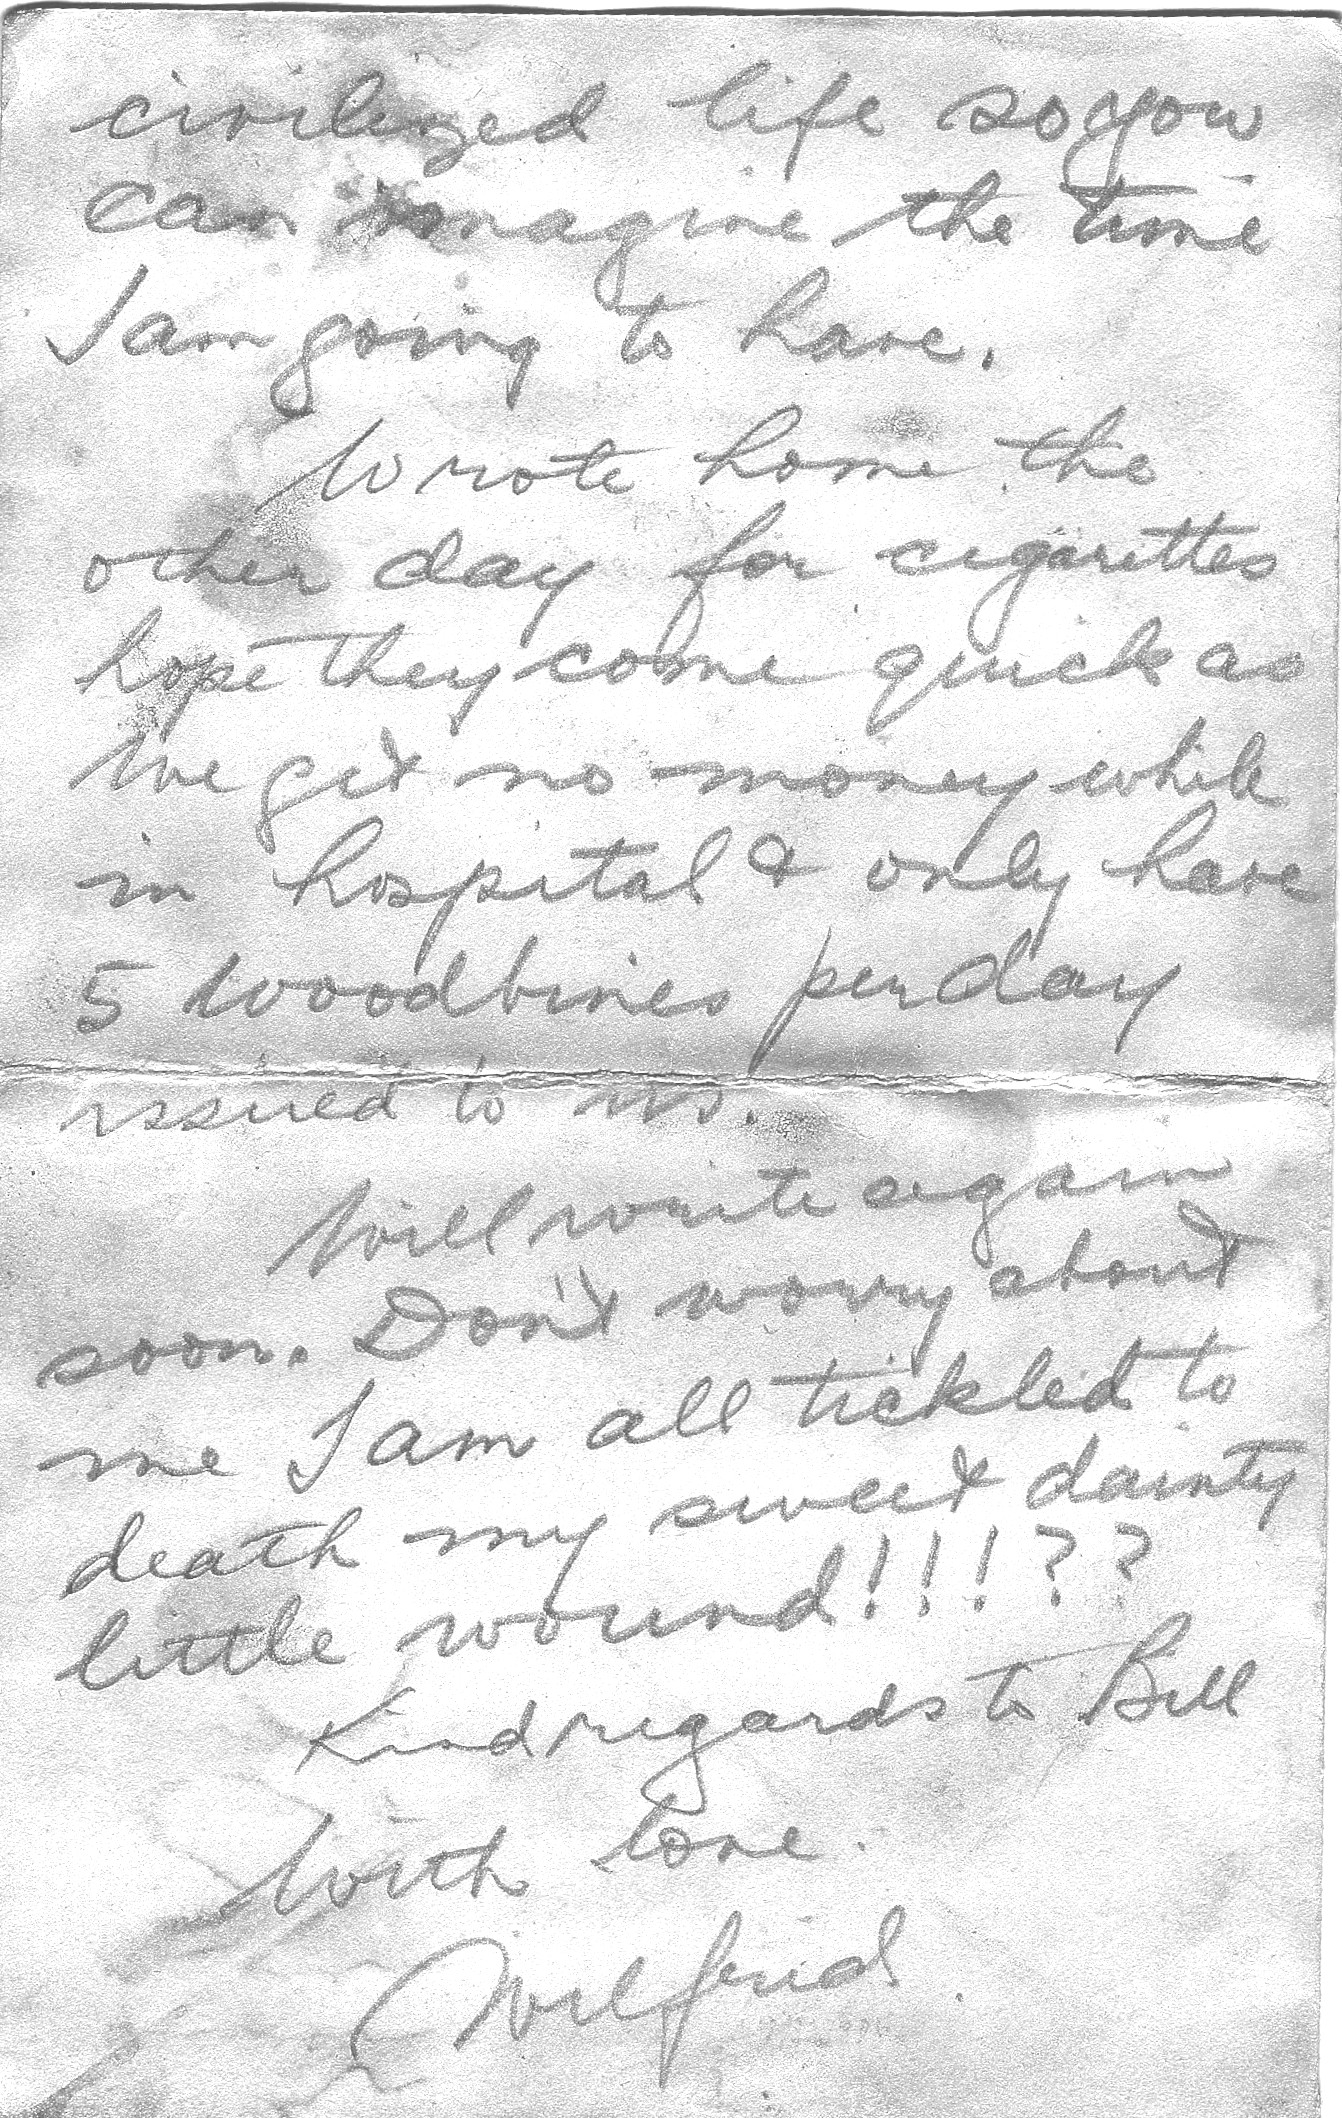 civilized life so you
can imagine the time
I am going to have.
Wrote home the
other day for cigarettes
hope they come quick as
We get no money while
in hospital & only have
5 Woodbines per day
issued to us.
Will write again
soon. Don't worry about
me I am all tickled to
death my sweet dainty
little wound!!!??
Kind regards to Bill
With love.
Wilfrid.